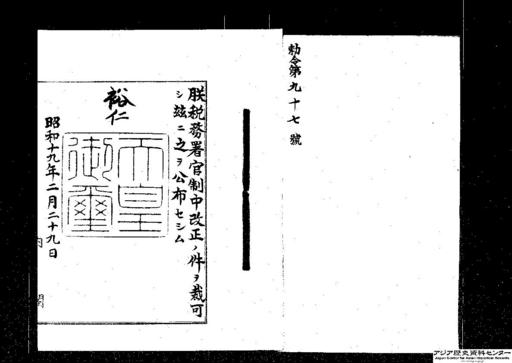 勅令第九十七號
朕税務署官制中改正ノ件ヲ裁可
シ茲ニ之ヲ公布セシム
裕仁
天皇
御璽
昭和十九年二月二十九日
内閣
アジア歴史資料センター
Japan Center for Asian Historical Records